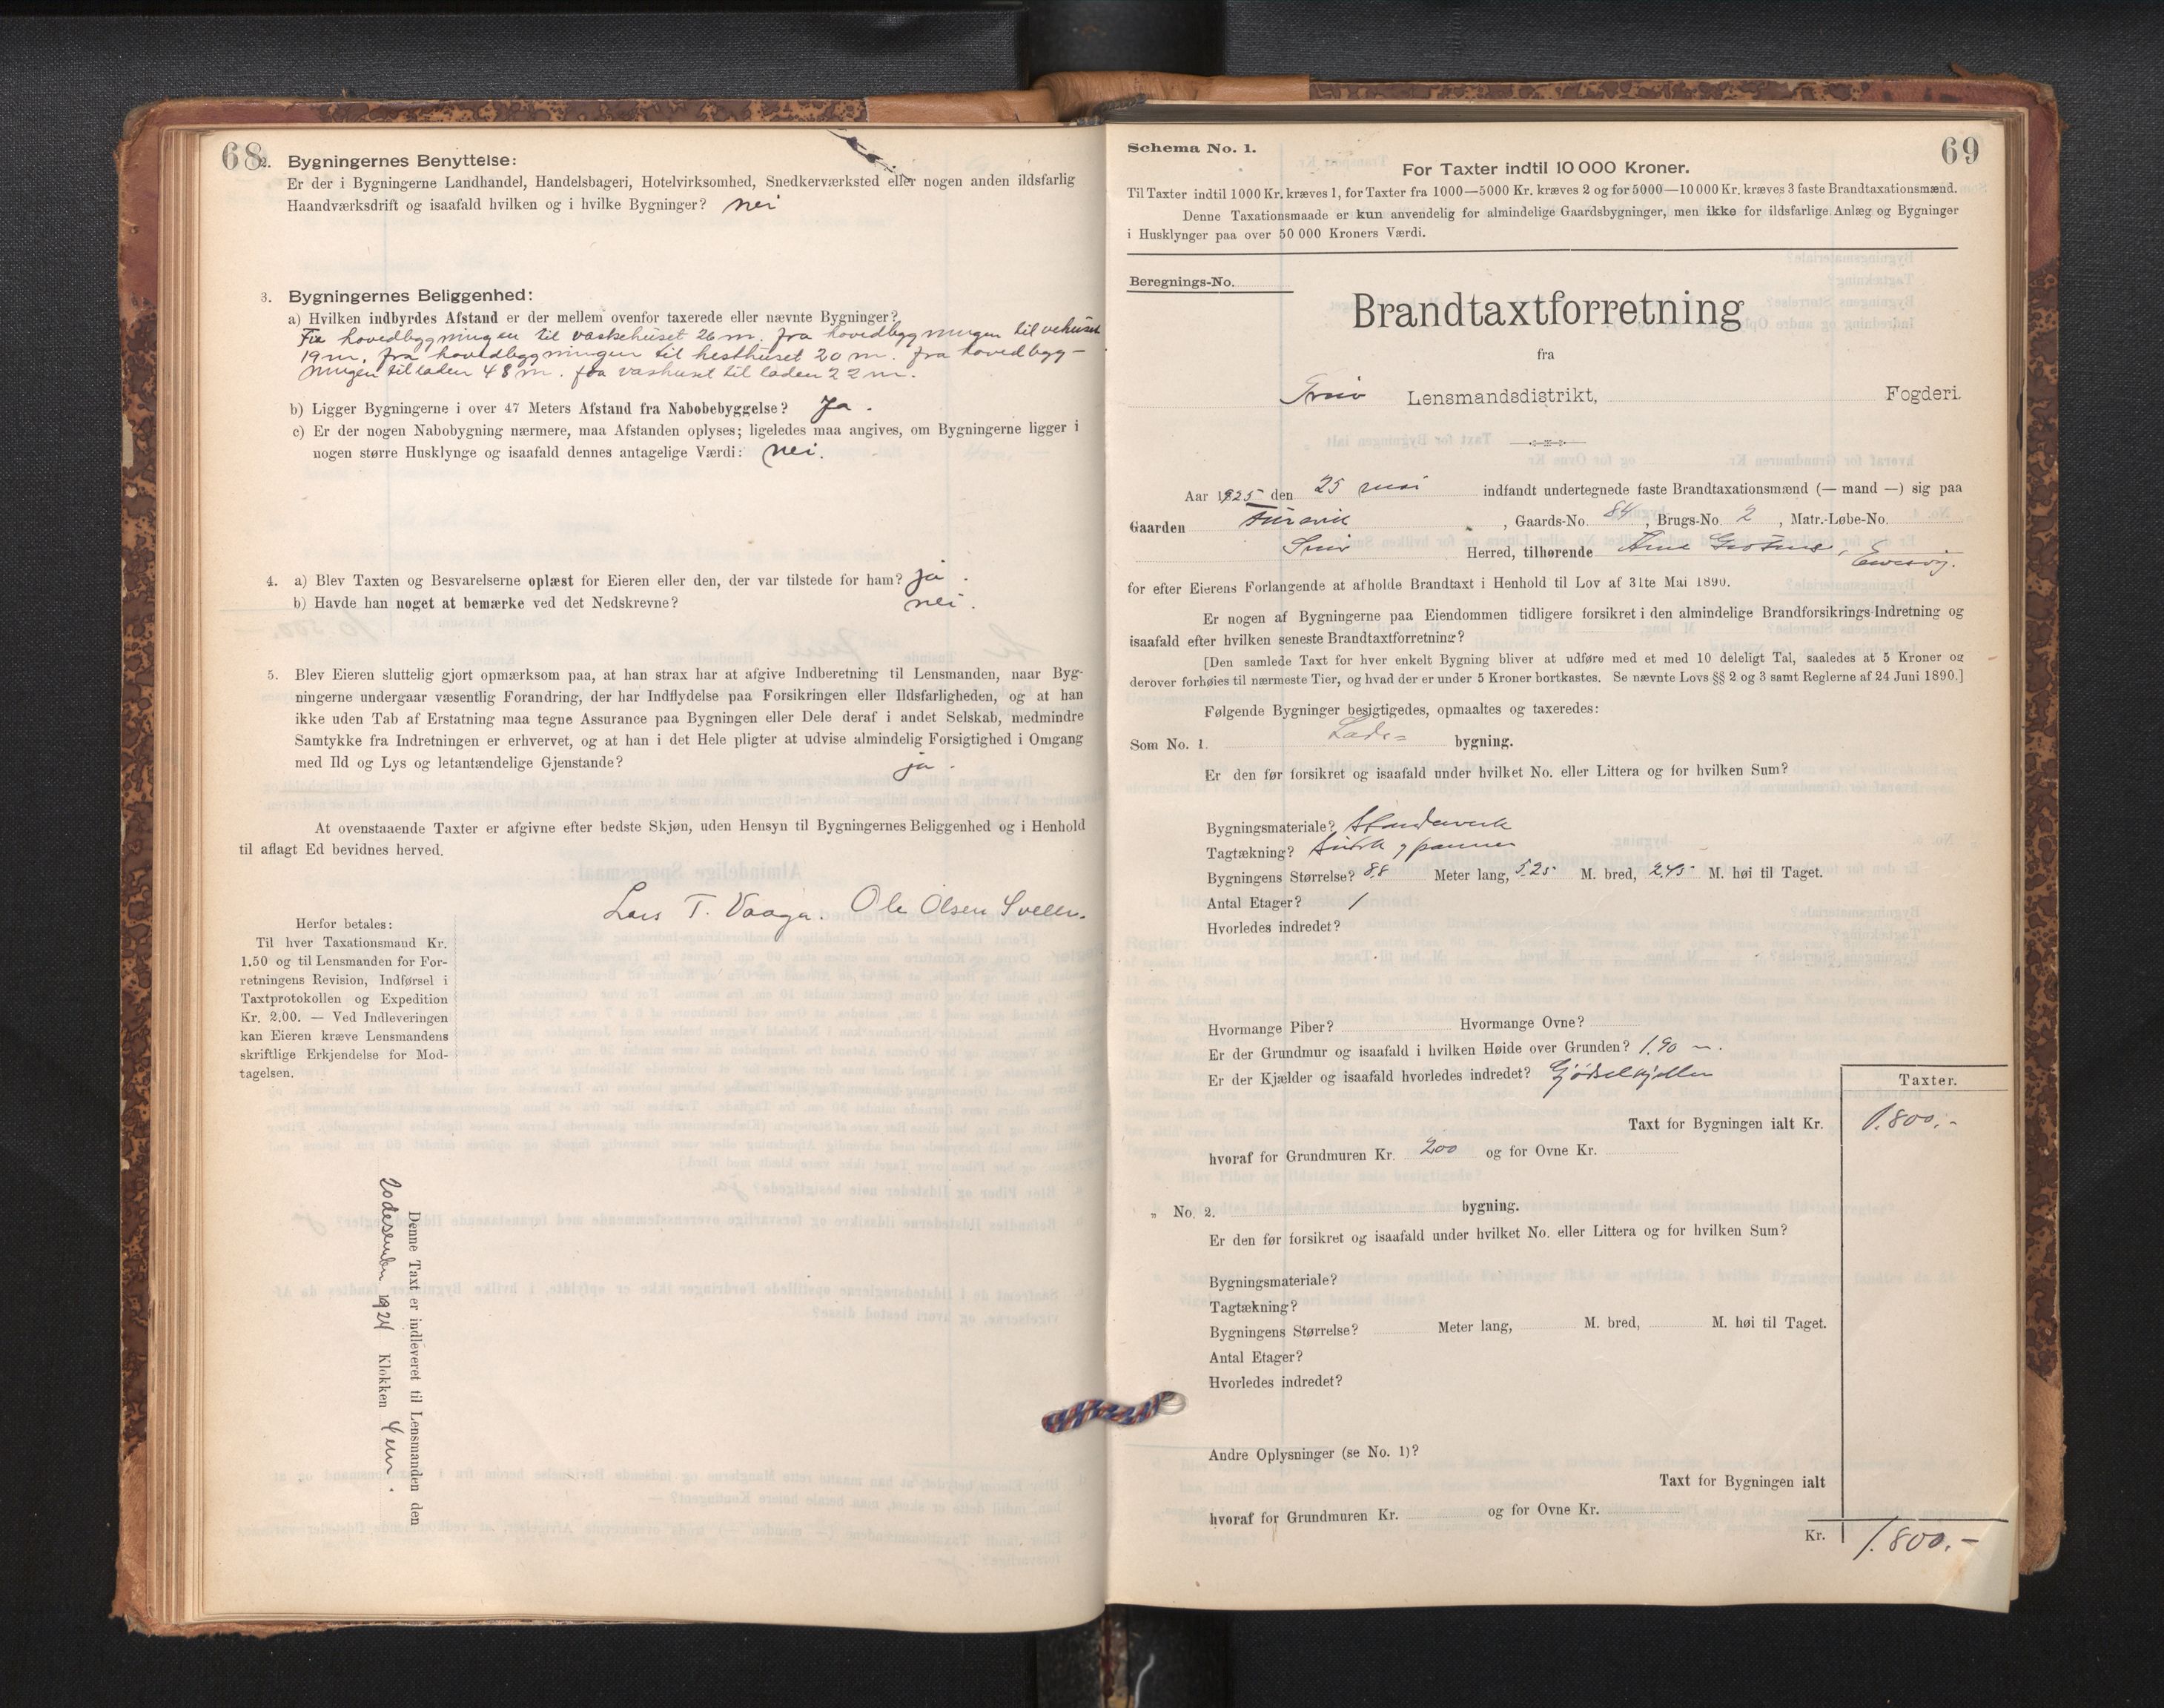 68
2. Bygningernes Benyttelse:
Er der i Bygningerne Landhandel, Handelsbageri, Hotelvirksomhed, Snedkerværksted eller nogen anden ildsfarlig
Haandværksdrift og isaafald hvilken og i hvilke Bygninger? nei
3. Bygningernes Beliggenhed:
a) Hvilken indbyrdes Afstand er der mellem ovenfor taxerede eller nævnte Bygninger?
Fra hovedbygningen til vaskehuset 26 m. fra hovedbygningen til vehuset
19 m, fra hovedbygningen til hesthuset 20 m. fra hovedbyg-
ningen til laden 48 m. fra vashuset til laden 22 m.
b) Ligger Bygningerne i over 47 Meters Afstand fra Nabobebyggelse? Ja.
c) Er der nogen Nabobygning nærmere, maa Afstanden oplyses; ligeledes maa angives, om Bygningerne ligger i
nogen større Husklynge og isaafald dennes antagelige Værdi: nei.
4. a) Blev Taxten og Besvarelserne oplæst for Eieren eller den, der var tilstede for ham? ja.
b) Havde han noget at bemærke ved det Nedskrevne? nei.
5. Blev Eieren sluttelig gjort opmærksom paa, at han strax har at afgive Indberetning til Lensmanden, naar Byg-
ningerne undergaar væsentlig Forandring, der har Indflydelse paa Forsikringen eller Ildsfarligheden, og at han
ikke uden Tab af Erstatning maa tegne Assurance paa Bygningen eller Dele deraf i andet Selskab, medmindre
Samtykke fra Indretningen er erhvervet, og at han i det Hele pligter at udvise almindelig Forsigtighed i Omgang
med Ild og Lys og letantændelige Gjenstande? ja.
At ovenstaaende Taxter er afgivne efter bedste Skjøn, uden Hensyn til Bygningernes Beliggenhed og i Henhold
til aflagt Ed bevidnes herved.
Lars T. Vaage. Ole Olsen Sveen.
Herfor betales:
Til hver Taxationsmand Kr.
1.50 og til Lensmanden for For-
retningens Revision, Indførsel i
Taxtprotokollen og Expedition
Kr. 2.00. — Ved Indleveringen
kan Eieren kræve Lensmandens
skriftlige Erkjendelse for Mod-
tagelsen.
Denne Taxt er indleveret til Lensmanden den
20 desember 1924 Klokken 4 em.
69
Schema No. 1.
For Taxter indtil 10 000 Kroner.
Til Taxter indtil 1000 Kr. kræves 1, for Taxter fra 1000—5000 Kr. kræves 2 og for 5000—10 000 Kr. kræves 3 faste Brandtaxationsmænd.
Denne Taxationsmaade er kun anvendelig for almindelige Gaardsbygninger, men ikke for ildsfarlige Anlæg og Bygninger
i Husklynger paa over 50 000 Kroners Værdi.
Beregnings-No.
Brandtaxtforretning
fra
Lensmandsdistrikt, Fogderi.
Aar 1925 den 25 mai indfandt undertegnede faste Brandtaxationsmænd (— mand —) sig paa
Gaarden , Gaards-No. 84, Brugs-No. 2, Matr.-Løbe-No.
Herred, tilhørende
for efter Eierens Forlangende at afholde Brandtaxt i Henhold til Lov af 31te Mai 1890.
Er nogen af Bygningerne paa Eiendommen tidligere forsikret i den almindelige Brandforsikrings-Indretning og
isaafald efter hvilken seneste Brandtaxtforretning?
[Den samlede Taxt for hver enkelt Bygning bliver at udføre med et med 10 deleligt Tal, saaledes at 5 Kroner og
derover forhøies til nærmeste Tier, og hvad der er under 5 Kroner bortkastes. Se nævnte Lovs §§ 2 og 3 samt Reglerne af 24 Juni 1890.]
Følgende Bygninger besigtigedes, opmaaltes og taxeredes:
Som No. 1. Lade= bygning.
Er den før forsikret og isaafald under hvilket No. eller Littera og for hvilken Sum?
Bygningsmateriale? Stenderverk
Tagtækning? panner
Bygningens Størrelse? 8,8 Meter lang, 5,25 M. bred, 2,45 M. høi til Taget.
Antal Etager? 1
Hvorledes indredet?
Hvormange Piber? Hvormange Ovne?
Er der Grundmur og isaafald i hvilken Høide over Grunden? 1,90 m.
Er der Kjælder og isaafald hvorledes indredet? Gjødselkjeller
Taxter.
Taxt for Bygningen ialt Kr. 1.800,-
hvoraf for Grundmuren Kr. 200 og for Ovne Kr.
„ No. 2. bygning.
Er den før forsikret og isaafald under hvilket No. eller Littera og for hvilken Sum?
Bygningsmateriale?
Tagtækning?
Bygningens Størrelse? Meter lang, M. bred, M. høi til Taget.
Antal Etager?
Hvorledes indredet?
Andre Oplysninger (se No. 1)?
Taxt for Bygningen ialt
hvoraf for Grundmuren Kr. og for Ovne Kr.
Kr. 1.800.-